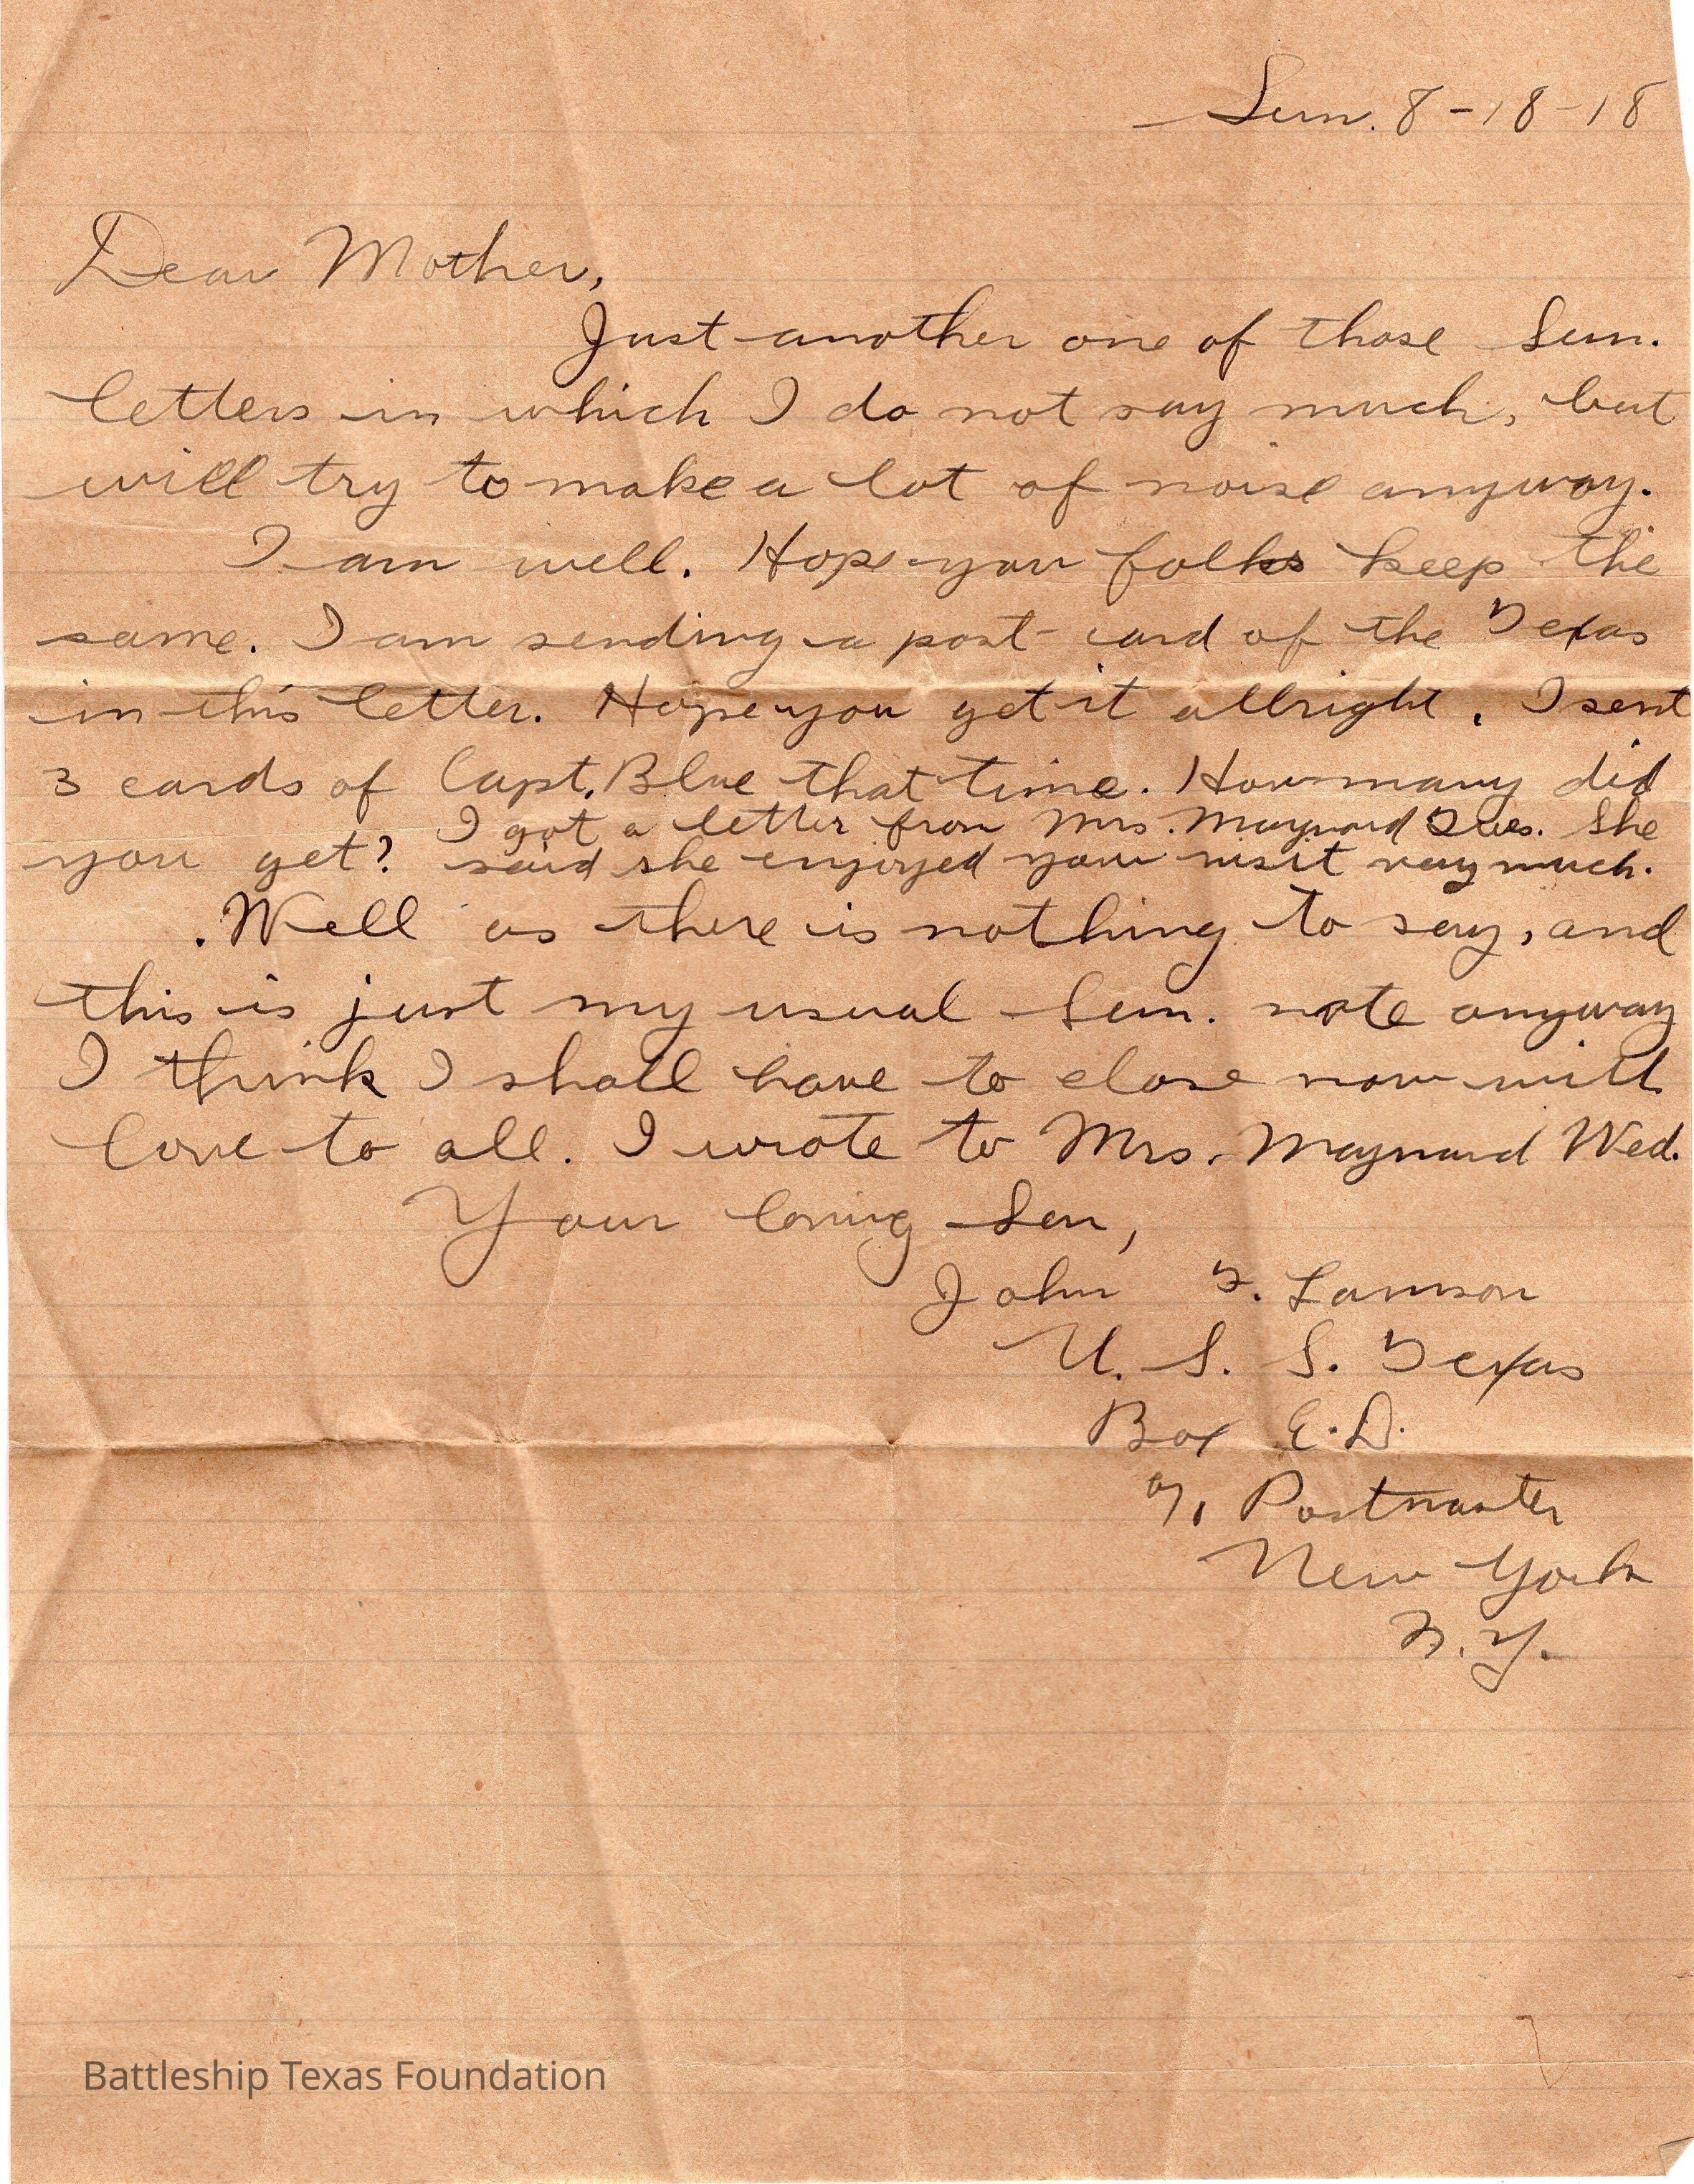 Sun. 8-18-18
Dear Mother,
Just another one of those Sun.
letters in which I do not say much, but
will try to make a lot of noise anyway.
I am well. Hope you folks keep the
same. I am sending a post-card of the Texas
in this letter. Hope you get it allright. I sent
3 cards of Capt. Blue that time. How many did
you get? I got a letter from Mrs. Maynard Tues. She
said she enjoyed your visit very much.
Well as there is nothing to say, and
this is just my usual Sun. note anyway
I think I shall have to close now with
love to all. I wrote to Mrs. Maynard Wed.
Your loving Son,
John T. Lamson
U. S. S. Texas
Box E.D.
Postmaster
New York
N.Y.
Battleship Texas Foundation